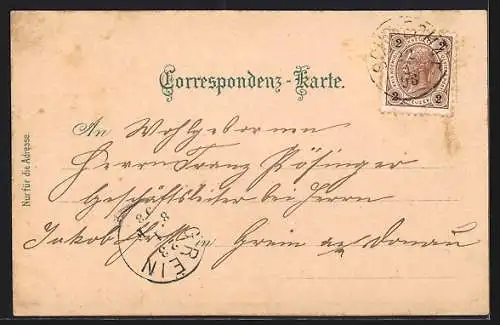 Correspondenz-Karte.
Nur für die Adresse.
2 2
2 2
An Wohlgebornen
Herrn Franz Pösinger
Geschäftsleiter bei Herrn
Jakob in Grein a/ Donau
GREIN